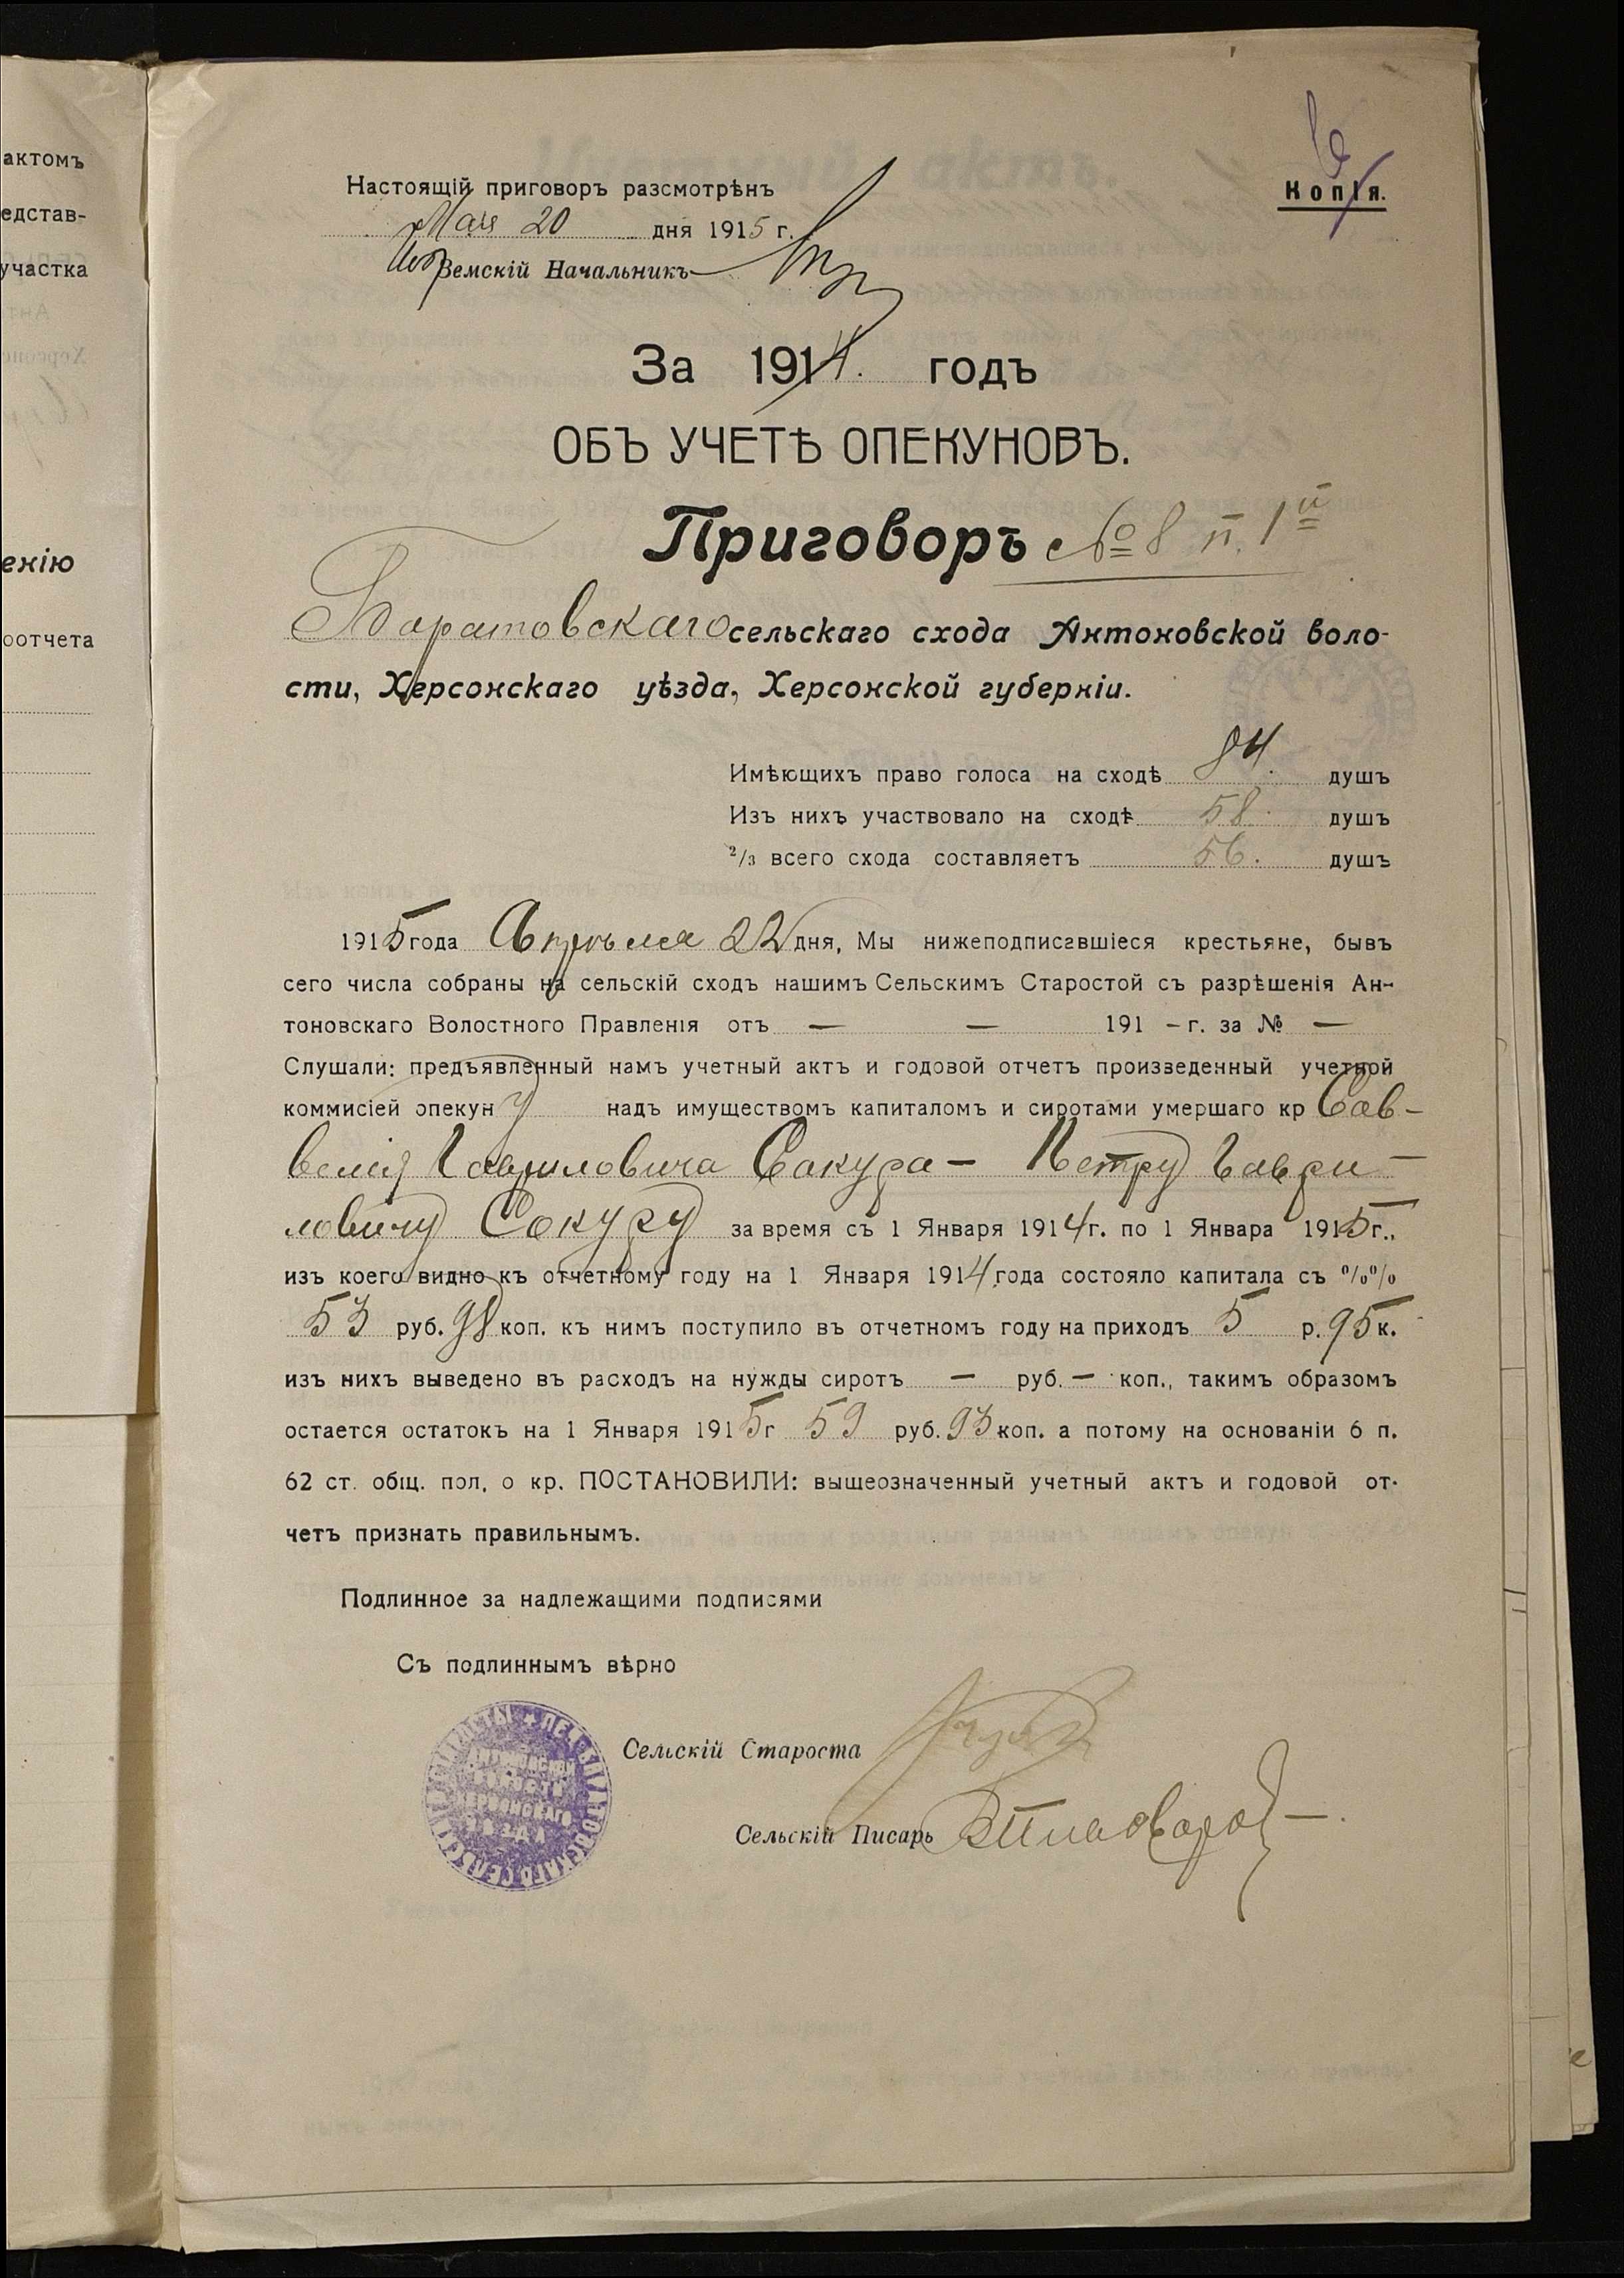 актомъ
едстав-
участка
енію
оотчета
6
Копія.
Настоящій приговоръ разсмотрѣнъ
Мая 20 дня 1915 г.
Земскій Начальникъ
За 1914. годъ
ОБЪ УЧЕТѢ ОПЕКУНОВЪ.
Приговоръ № 8 п. 1й
Баратовскаго сельскаго схода Антоновской воло-
сти, Херсонскаго уѣзда, Херсонской губерніи.
Имѣющихъ право голоса на сходѣ 84. душъ
Изъ нихъ участвовало на сходѣ 58. душъ
2/3 всего схода составляетъ 56. душъ
1915 года Апрѣля 22 дня, Мы нижеподписавшіеся крестьяне, бывъ
сего числа собраны на сельскій сходъ нашимъ Сельскимъ Старостой съ разрѣшенія Ан-
тоновскаго Волостного Правленія отъ — — 191 - г. за № —
Слушали: предъявленный намъ учетный актъ и годовой отчетъ произведенный учетной
коммисіей опекун у надъ имуществомъ капиталомъ и сиротами умершаго кр Сав-
велія Гавриловича Сакура — Петру Гаври-
ловичу Сокуру за время съ 1 Января 1914 г. по 1 Января 1915 г.,
изъ коего видно къ отчетному году на 1 Января 1914 года состояло капитала съ %%
53 руб. 98 коп. къ нимъ поступило въ отчетномъ году на приходъ 5 р. 95 к.
изъ нихъ выведено въ расходъ на нужды сиротъ — руб. — коп., такимъ образомъ
остается остатокъ на 1 Января 1915 г 59 руб. 93 коп. а потому на основаніи 6 п.
62 ст. общ. пол, о кр. ПОСТАНОВИЛИ: вышеозначенный учетный актъ и годовой от-
четъ признать правильнымъ.
Подлинное за надлежащими подписями
Съ подлиннымъ вѣрно
Сельскій Староста
Сельскій Писарь
АНТОНОВСКОЙ
ВОЛОСТИ
ХЕРСОНСКАГО
УѢЗДА